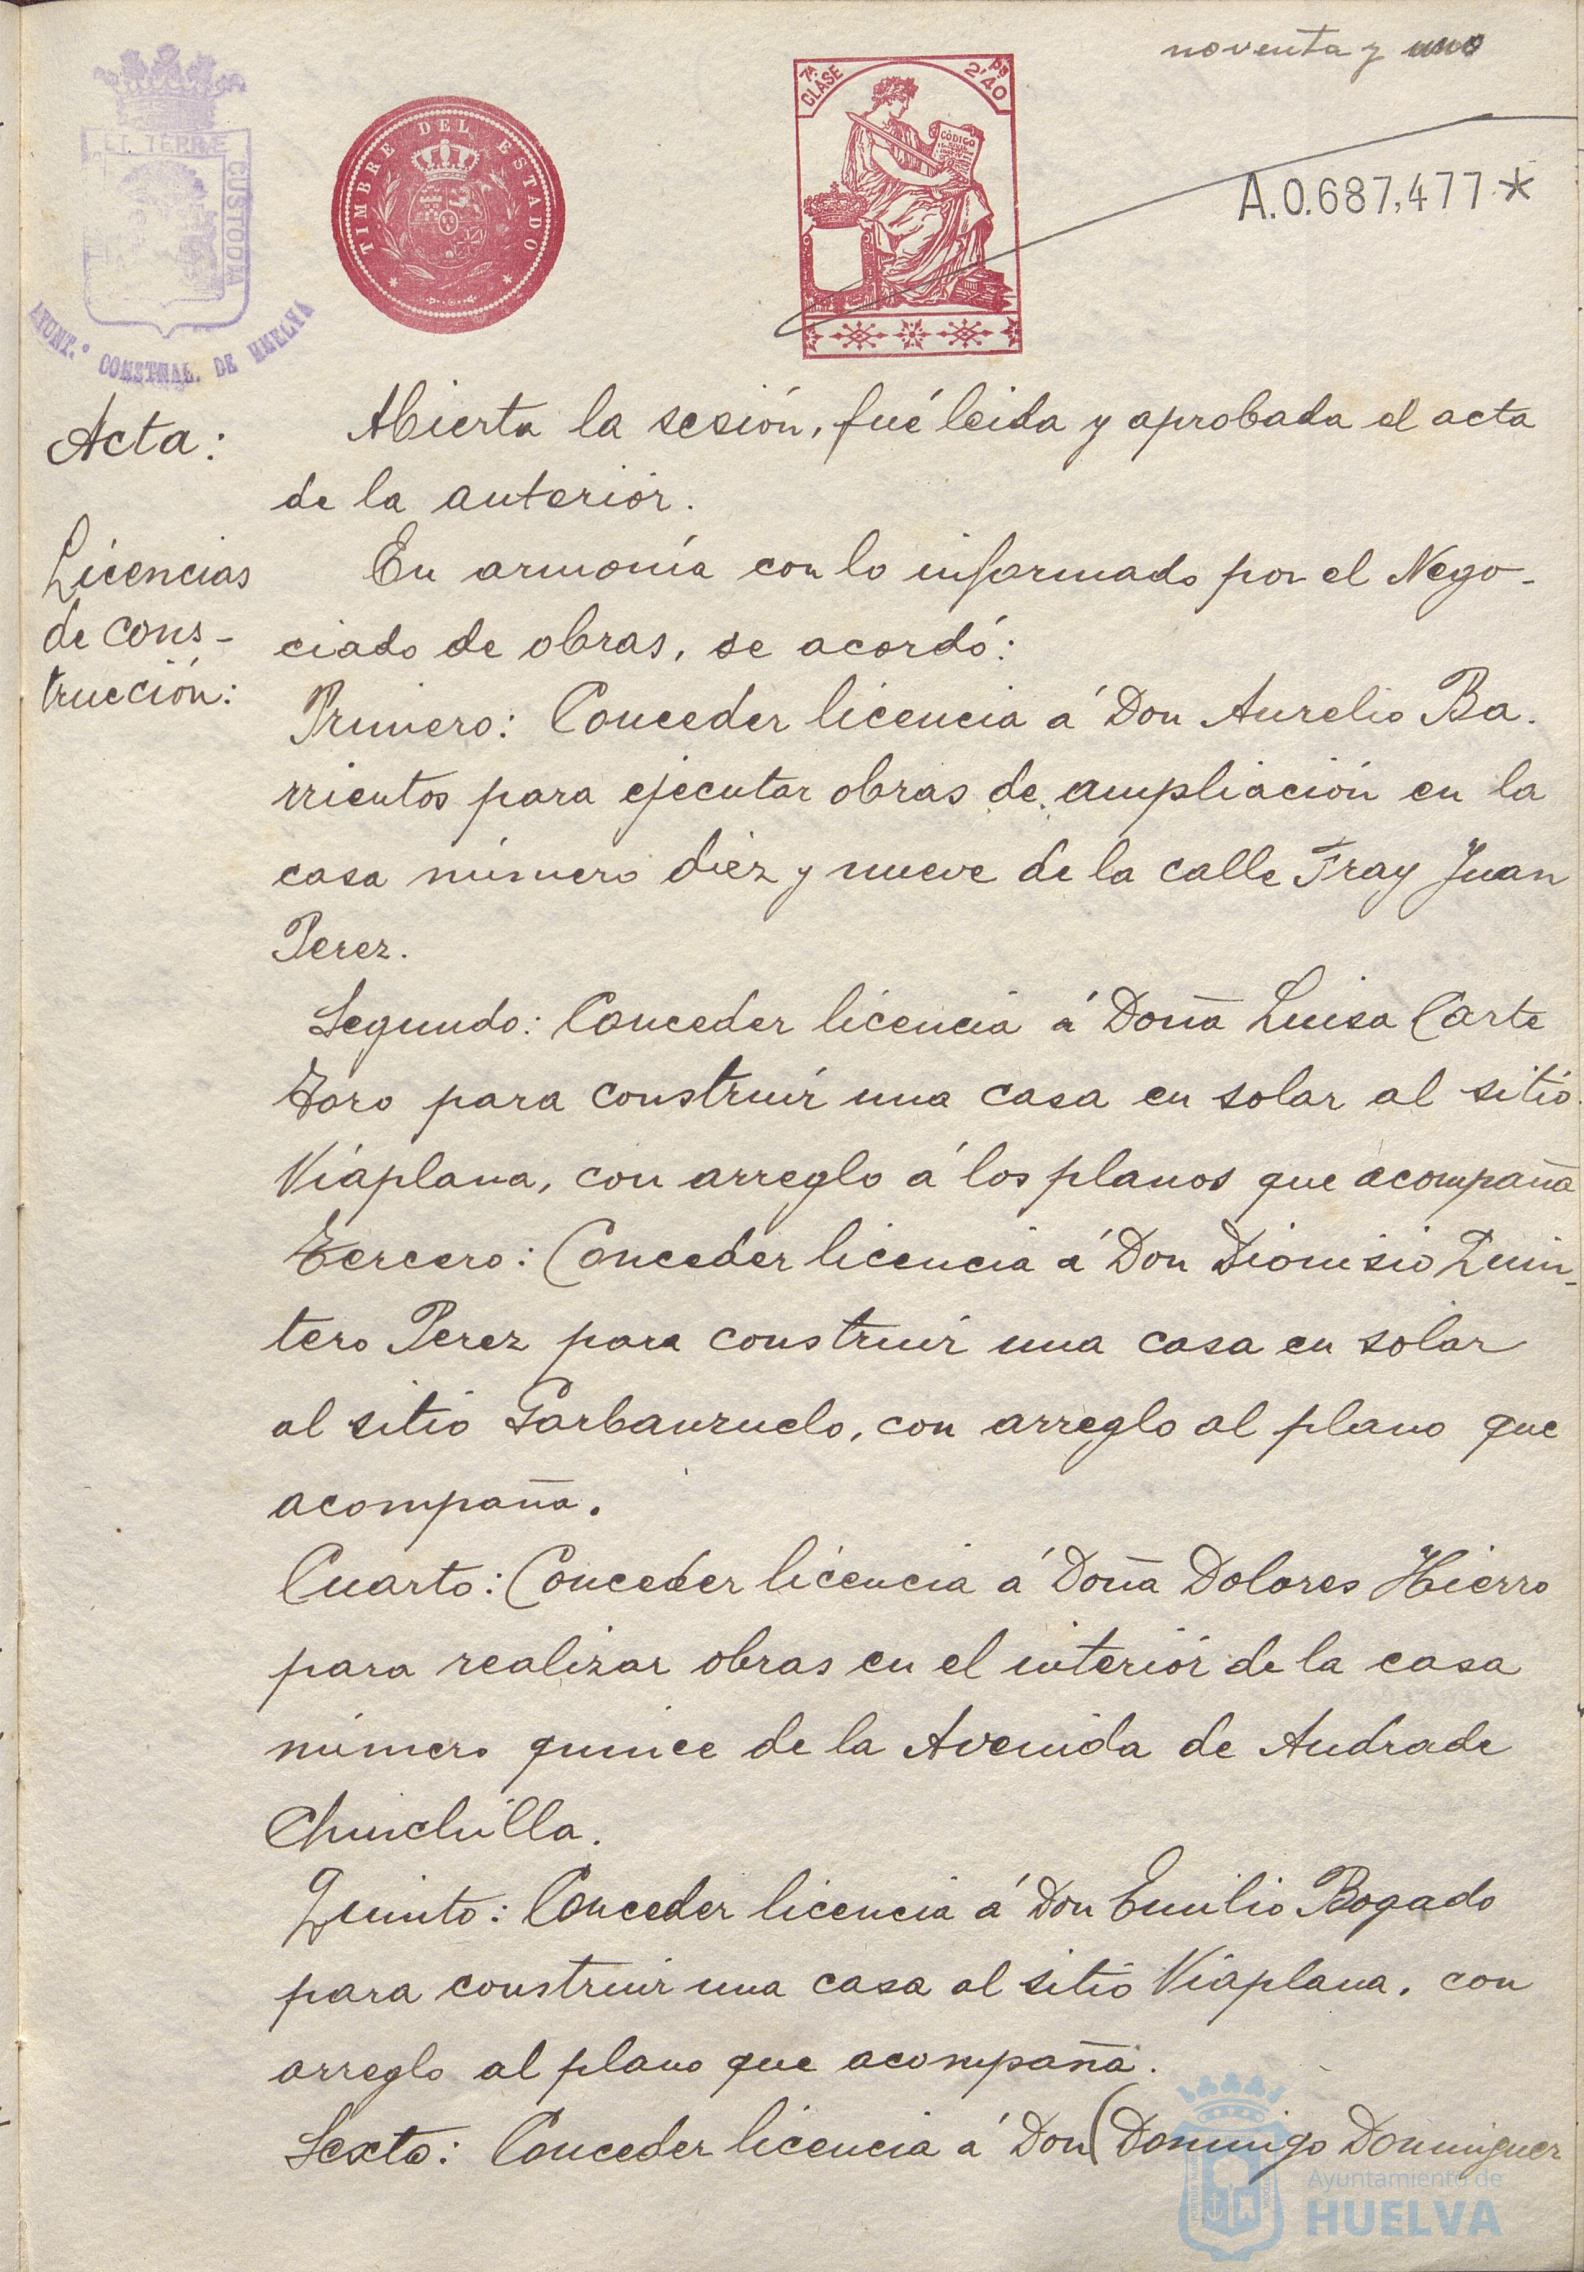 noventa y uno
7ª CLASE
2'40 Pts
CÓDIGO
TIMBRE DEL ESTADO
ET TERRÆ CUSTODIA
AYUNT.º CONSTNAL. DE HUELVA
A.0.687,477*
Acta:
Abierta la sesión, fué leida y aprobada el acta
de la anterior.
Licencias
de cons-
trucción:
En armonía con lo informado por el Nego-
ciado de obras, se acordó:
Primero: Conceder licencia á Don Aurelio Ba.
rrientos para ejecutar obras de ampliación en la
casa número diez y nueve de la calle Fray Juan
Perez.
Segundo: Conceder licencia á Doña Luisa Carte
Toro para construir una casa en solar al sitio
Viaplana, con arreglo á los planos que acompaña
Tercero: Conceder licencia á Don Dionisio Quin-
tero Perez para construir una casa en solar
al sitio Garbanzuelo, con arreglo al plano que
acompaña.
Cuarto: Conceder licencia á Doña Dolores Hierro
para realizar obras en el interior de la casa
número quince de la Avenida de Andrade
Chinchilla.
Quinto: Conceder licencia á Don Emilio Bogado
para construir una casa al sitio Viaplana, con
arreglo al plano que acompaña.
Sexto: Conceder licencia á Don (Domingo Dominguez
Ayuntamiento de
HUELVA